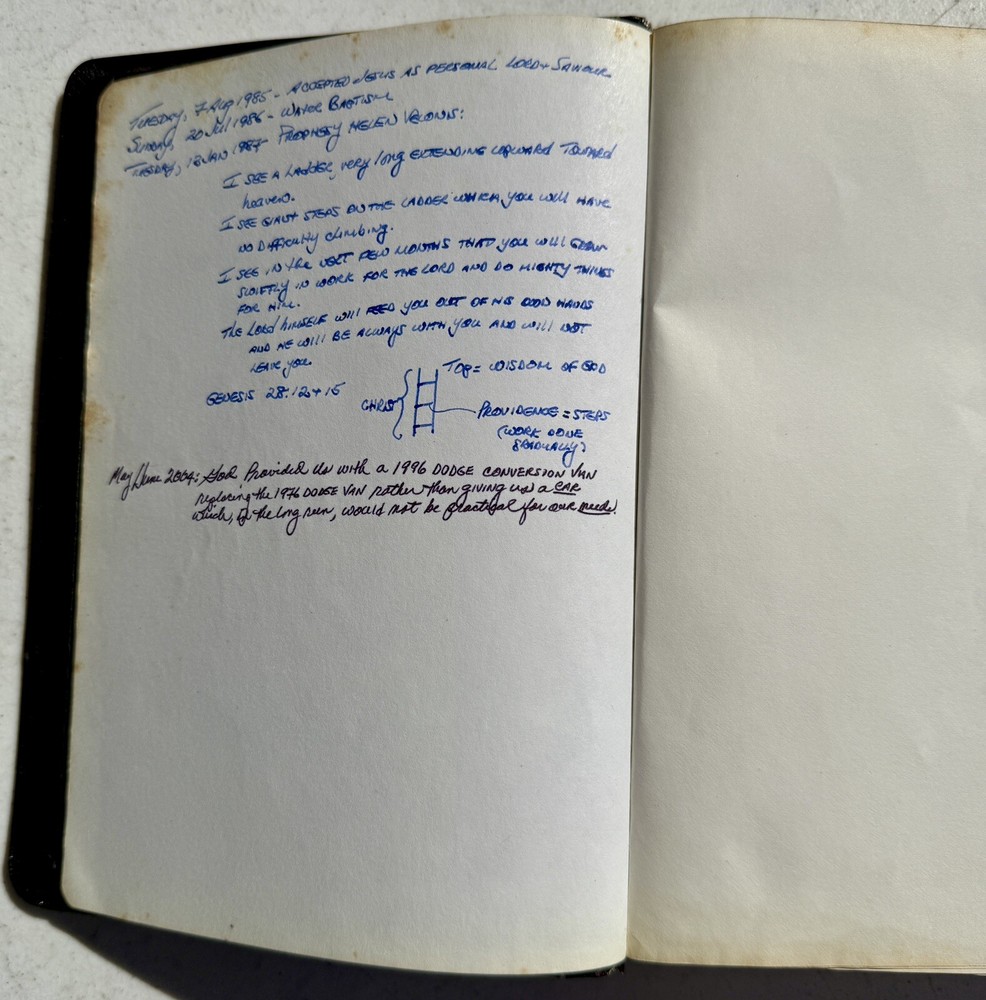 TUESDAY, 7 Aug 1985 - ACCEPTED JESUS AS PERSONAL LORD + SAVIOUR
SUNDAY, 20 Jul 1986 - WATER BAPTISM
TUESDAY, 13 JAN 1987 PROPHESY HELEN
I SEE A LADDER, very long EXTENDING UPWARD TOWARD
heaven.
I SEE GIANT STEPS ON THE LADDER WHICH you WILL HAVE
NO DIFFICULTY climbing.
I SEE IN the NEXT FEW MONTHS THAT you WILL GROW
SWIFTLY IN WORK FOR THE LORD AND DO MIGHTY THINGS
FOR HIM.
THE LORD HIMSELF WILL FEED YOU OUT OF HIS OWN HANDS
AND HE WILL BE ALWAYS WITH YOU AND WILL NOT
LEAVE you.
GENESIS 28:12+15
TOP = WISDOM OF GOD
CHRIST
PROVIDENCE = STEPS
(WORK DONE
GRADUALLY)
May/June 2004: God Provided Us with a 1996 DODGE CONVERSION VAN
replacing the 1976 DODGE VAN rather than giving us a CAR
which, in the long run, would not be practical for our needs.